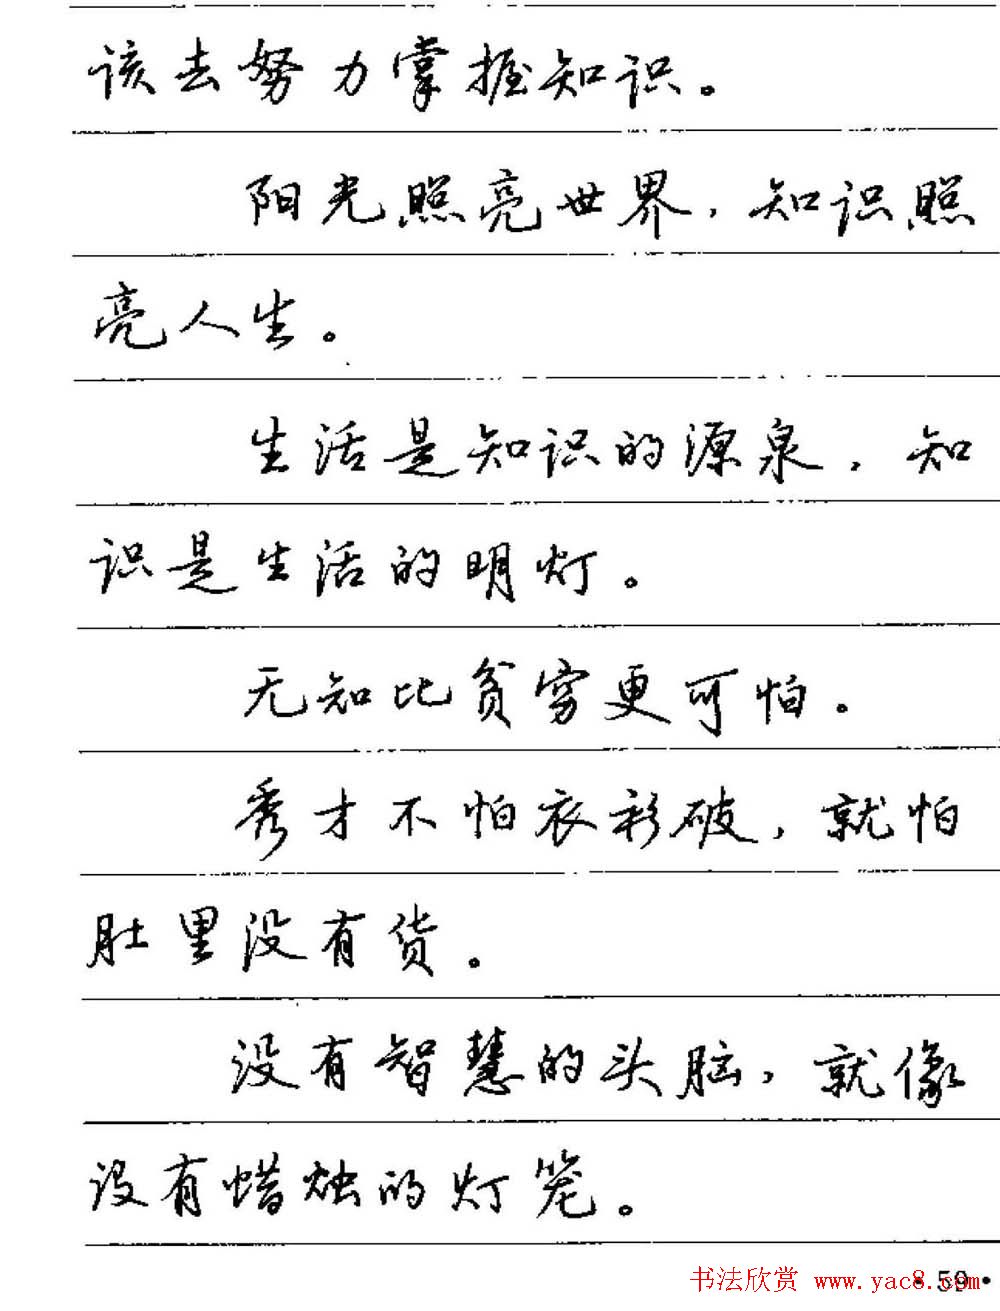 该去努力掌握知识。
阳光照亮世界，知识照
亮人生。
生活是知识的源泉，知
识是生活的明灯。
无知比贫穷更可怕。
秀才不怕衣衫破，就怕
肚里没有货。
没有智慧的头脑，就像
没有蜡烛的灯笼。
·59·
书法欣赏 www.yac8.com